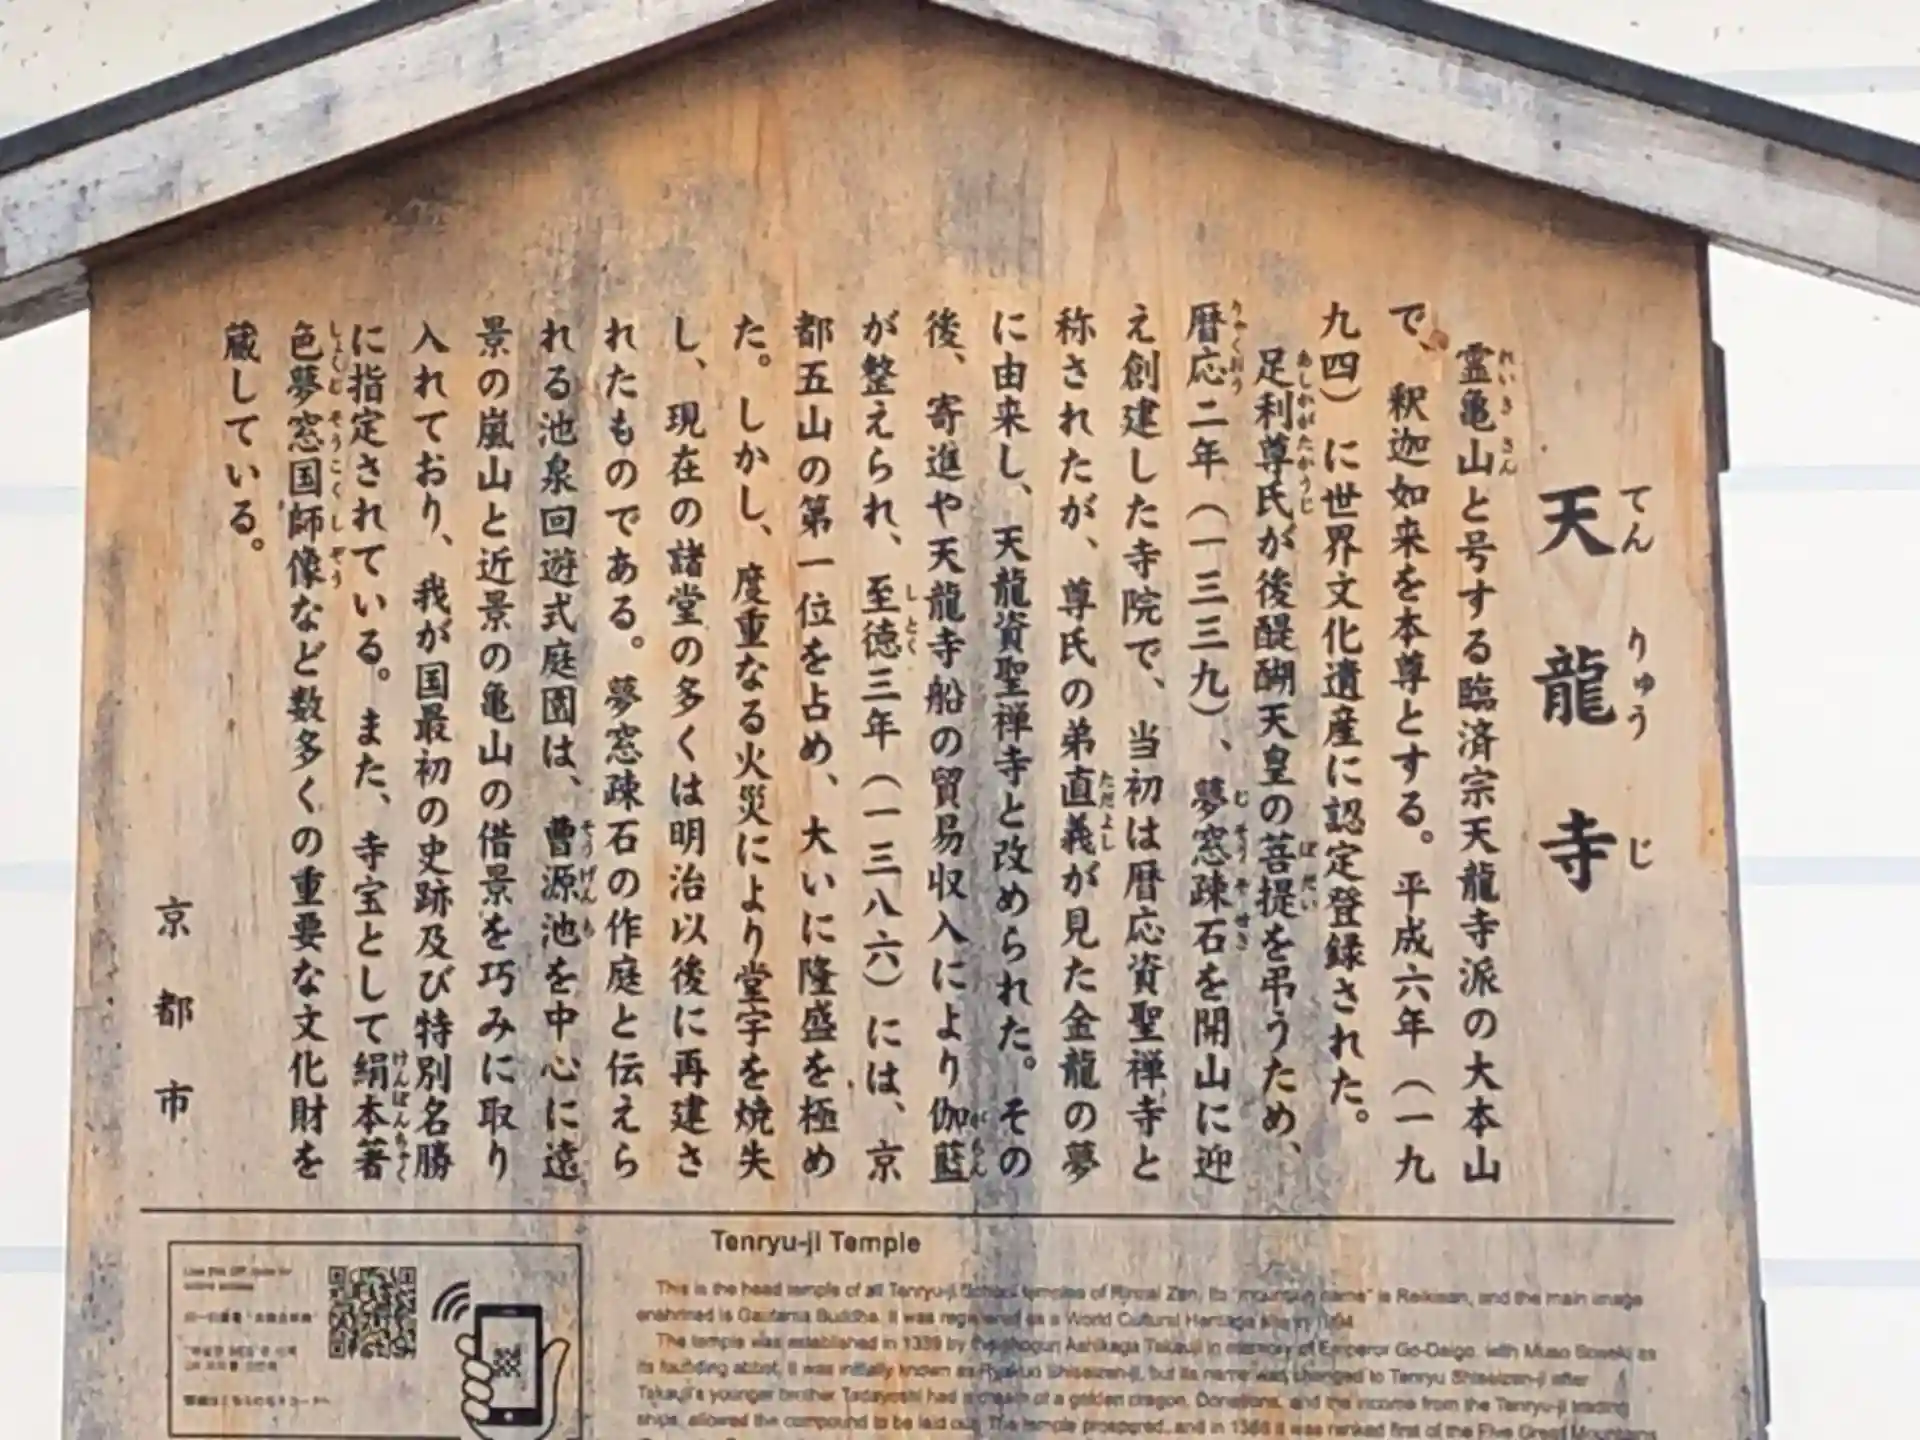 天龍寺
てんりゅうじ
霊亀山と号する臨済宗天龍寺派の大本山
れいきさん
で、釈迦如来を本尊とする。平成六年（一九
九四）に世界文化遺産に認定登録された。
足利尊氏が後醍醐天皇の菩提を弔うため、
あしかがたかうじ ぼだい
暦応二年（一三三九）、夢窓疎石を開山に迎
りゃくおう むそうそせき
え創建した寺院で、当初は暦応資聖禅寺と
称されたが、尊氏の弟直義が見た金龍の夢
ただよし
に由来し、天龍資聖禅寺と改められた。その
後、寄進や天龍寺船の貿易収入により伽藍
がらん
が整えられ、至徳三年（一三八六）には、京
しとく
都五山の第一位を占め、大いに隆盛を極め
た。しかし、度重なる火災により堂宇を焼失
し、現在の諸堂の多くは明治以後に再建さ
れたものである。夢窓疎石の作庭と伝えら
れる池泉回遊式庭園は、曹源池を中心に遠
そうげんち
景の嵐山と近景の亀山の借景を巧みに取り
入れており、我が国最初の史跡及び特別名勝
に指定されている。また、寺宝として絹本著
けんぽんちゃく
色夢窓国師像など数多くの重要な文化財を
しょくむそうこくしぞう
蔵している。
京都市
Tenryu-ji Temple
This is the head temple of all Tenryu-ji School temples of Rinzai Zen. Its "mountain name" is Reikisan, and the main image
enshrined is Gautama Buddha. It was registered as a World Cultural Heritage site in 1994.
The temple was established in 1339 by the shogun Ashikaga Takauji in memory of Emperor Go-Daigo, with Muso Soseki as
its founding abbot. It was initially known as Ryakuo Shiseizen-ji, but its name was changed to Tenryu Shiseizen-ji after
Takauji's younger brother Tadayoshi had a dream of a golden dragon. Donations, and the income from the Tenryu-ji trading
ships, allowed the compound to be laid out. The temple prospered, and in 1386 it was ranked first of the Five Great Mountains